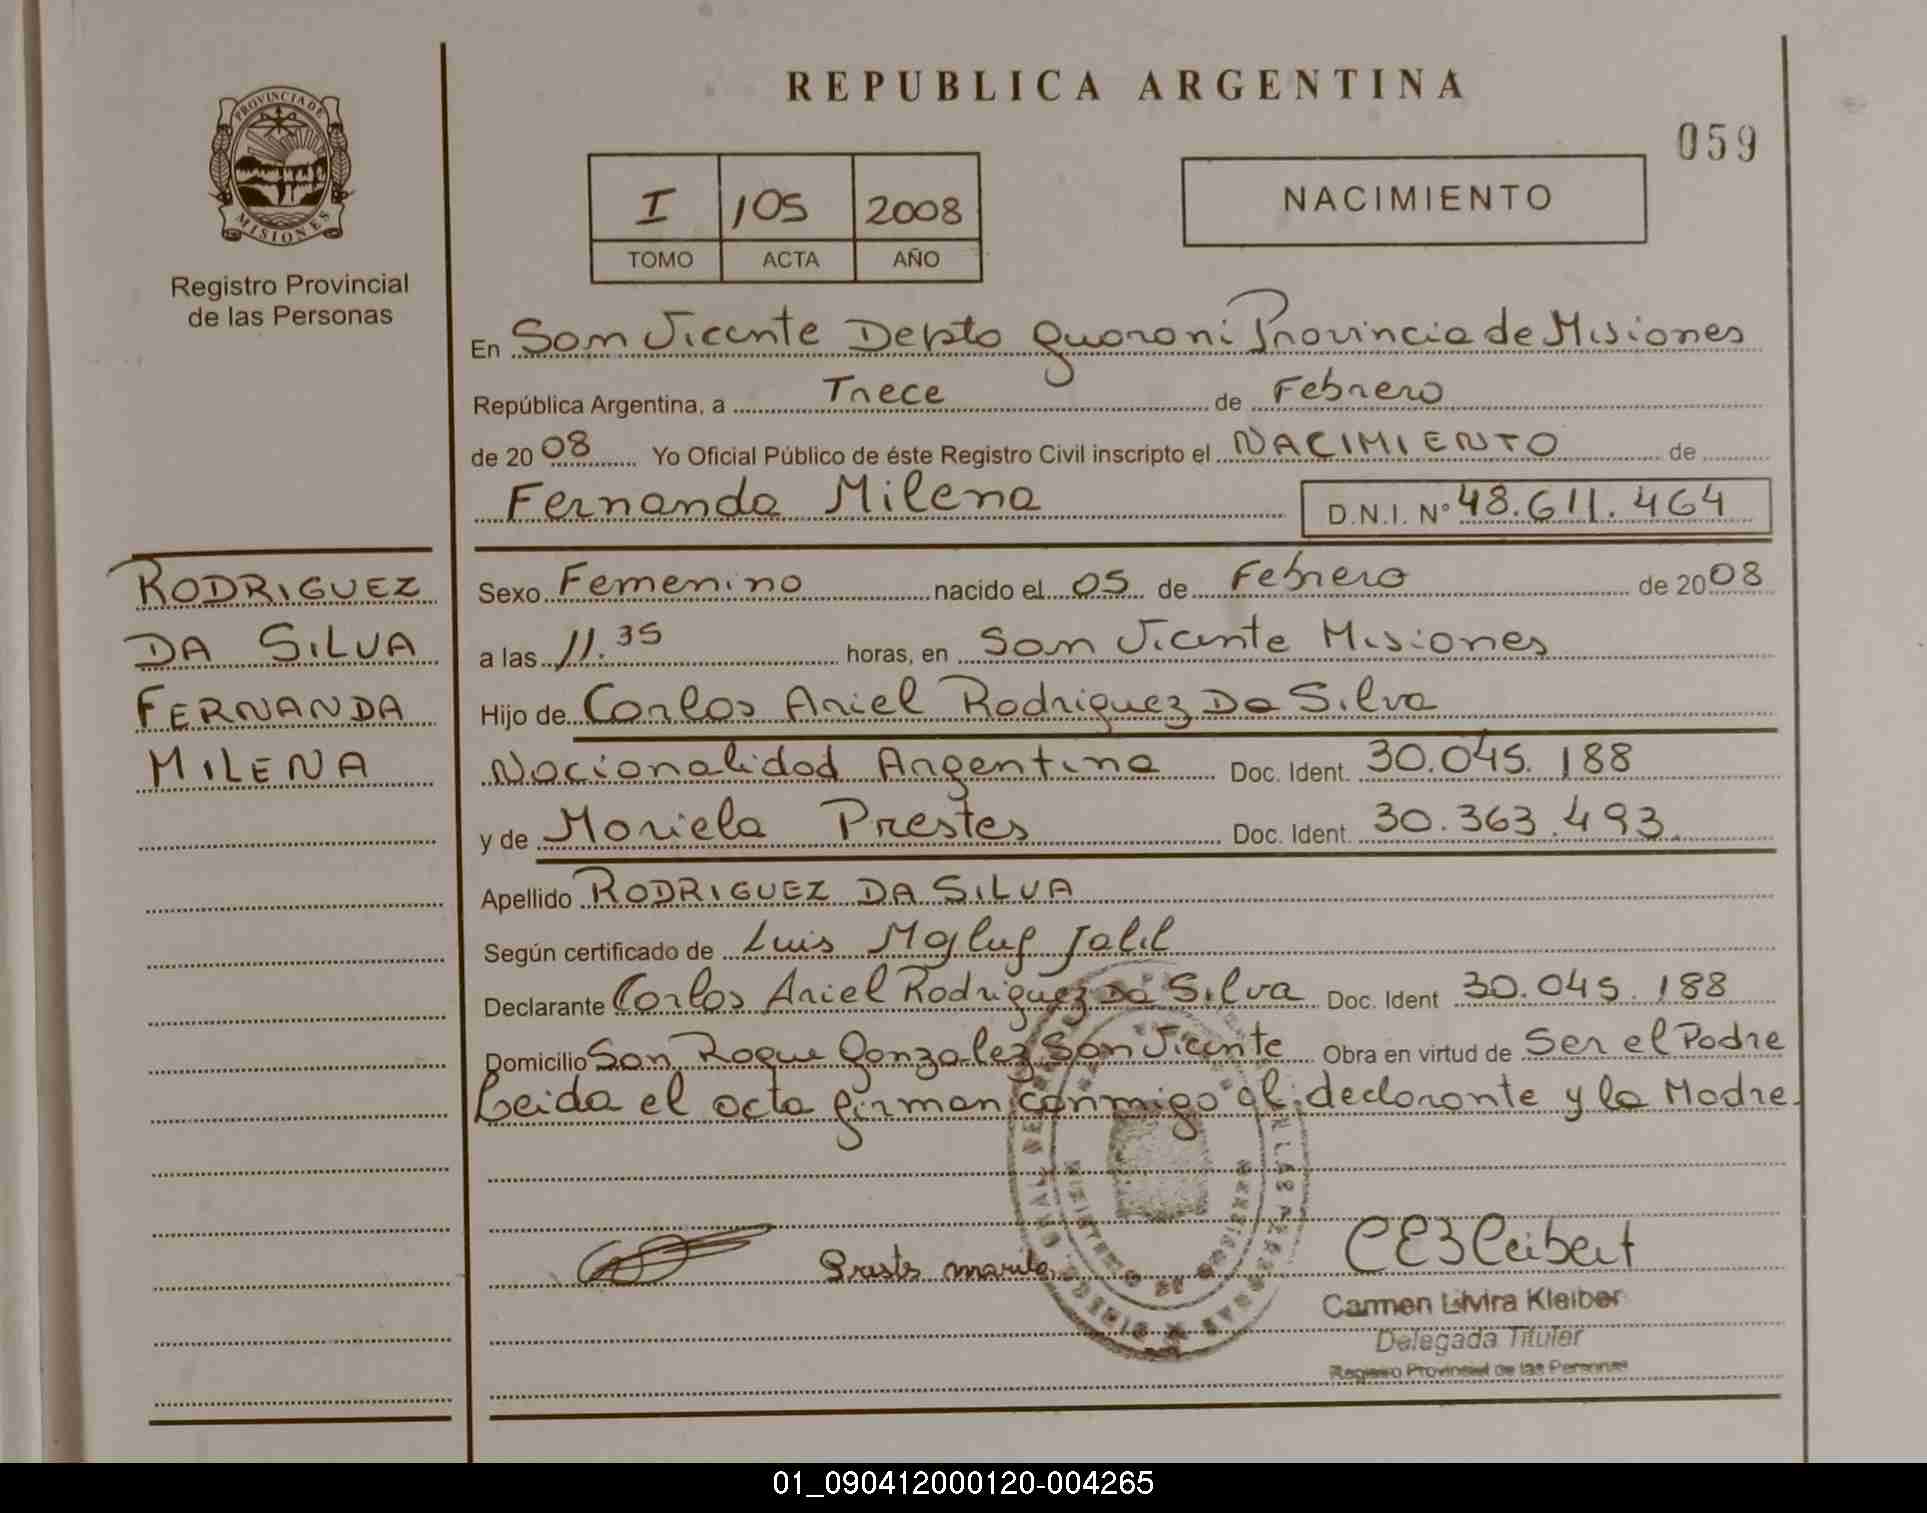 REPUBLICA ARGENTINA
059
PROVINCIA DE
MISIONES
Registro Provincial
de las Personas
I 105 2008
TOMO ACTA AÑO
NACIMIENTO
En San Vicente Depto Guarani Provincia de Misiones
República Argentina, a Trece de Febrero
de 2008 Yo Oficial Público de éste Registro Civil inscripto el NACIMIENTO de
Fernanda Milena D.N.I. Nº 48.611.464
RODRIGUEZ
DA SILVA
FERNANDA
MILENA
Sexo Femenino nacido el 05 de Febrero de 2008
a las 11.35 horas, en San Vicente Misiones
Hijo de Carlos Ariel Rodriguez Da Silva
Nacionalidad Argentina Doc. Ident. 30.045.188
y de Mariela Prestes Doc. Ident. 30.363.493
Apellido RODRIGUEZ DA SILVA
Según certificado de Luis Jalil
Declarante Carlos Ariel Rodriguez Da Silva Doc. Ident 30.045.188
Domicilio San Roque Gonzalez San Vicente Obra en virtud de Ser el Padre
Leida el acta firman conmigo el declarante y la Madre.
Carmen Kleiber
Delegada Titular
Registro Provincial de las Personas
01_090412000120-004265